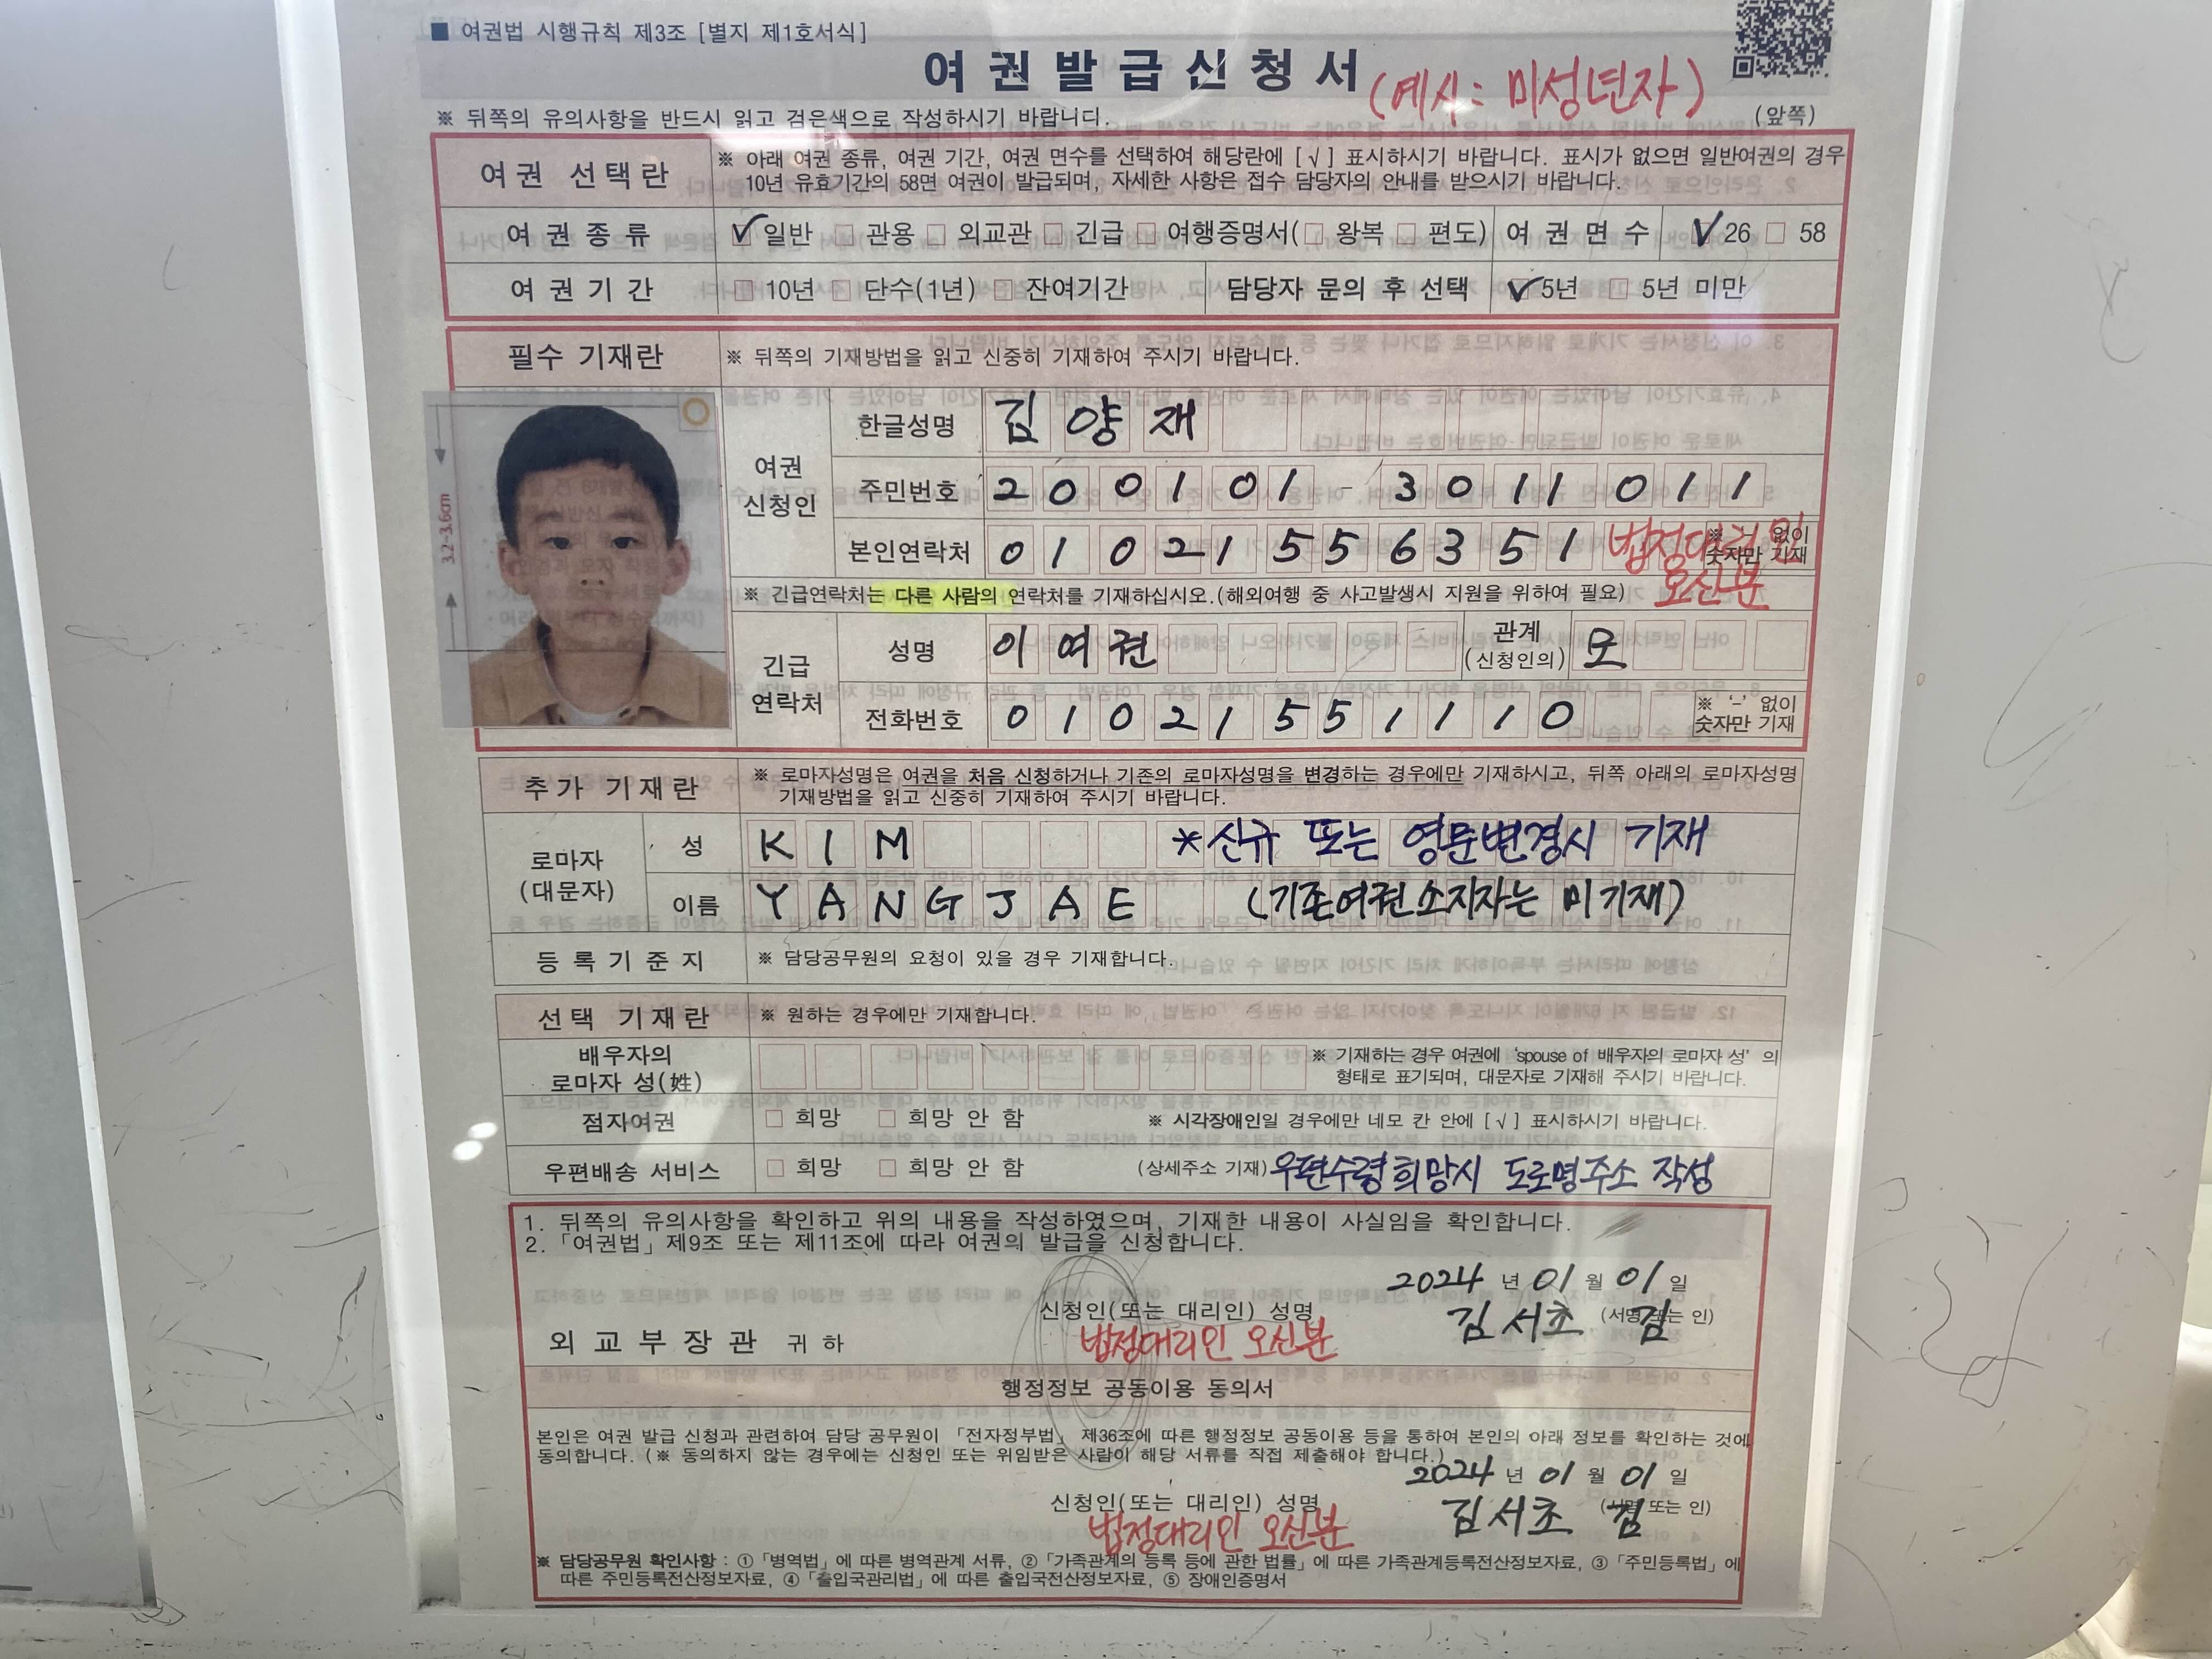 ■ 여권법 시행규칙 제3조 [별지 제1호서식]
여권발급신청서 (예시: 미성년자)
※ 뒤쪽의 유의사항을 반드시 읽고 검은색으로 작성하시기 바랍니다. (앞쪽)
여권 선택란 ※ 아래 여권 종류, 여권 기간, 여권 면수를 선택하여 해당란에 [√] 표시하시기 바랍니다. 표시가 없으면 일반여권의 경우
10년 유효기간의 58면 여권이 발급되며, 자세한 사항은 접수 담당자의 안내를 받으시기 바랍니다.
여권종류 ☑ 일반 □ 관용 □ 외교관 □ 긴급 □ 여행증명서(□ 왕복 □ 편도) 여권면수 ☑ 26 □ 58
여권기간 □ 10년 □ 단수(1년) □ 잔여기간 담당자 문의 후 선택 ☑ 5년 □ 5년 미만
필수 기재란 ※ 뒤쪽의 기재방법을 읽고 신중히 기재하여 주시기 바랍니다.
3.2-3.6cm
여권
신청인
한글성명 김양재
주민번호 200101-3011011
본인연락처 01021556351 ※ '-' 없이
숫자만 기재
법정대리인
오신분
※ 긴급연락처는 다른 사람의 연락처를 기재하십시오.(해외여행 중 사고발생시 지원을 위하여 필요)
긴급
연락처
성명 이여권 관계
(신청인의) 모
전화번호 01021551110 ※ '-' 없이
숫자만 기재
추가 기재란 ※ 로마자성명은 여권을 처음 신청하거나 기존의 로마자성명을 변경하는 경우에만 기재하시고, 뒤쪽 아래의 로마자성명
기재방법을 읽고 신중히 기재하여 주시기 바랍니다.
로마자
(대문자)
성 KIM *신규 또는 영문변경시 기재
이름 YANGJAE (기존여권소지자는 미기재)
등록기준지 ※ 담당공무원의 요청이 있을 경우 기재합니다.
선택 기재란 ※ 원하는 경우에만 기재합니다.
배우자의
로마자 성(姓)
※ 기재하는 경우 여권에 'spouse of 배우자의 로마자 성' 의
형태로 표기되며, 대문자로 기재해 주시기 바랍니다.
점자여권 □ 희망 □ 희망 안 함 ※ 시각장애인일 경우에만 네모 칸 안에 [√] 표시하시기 바랍니다.
우편배송 서비스 □ 희망 □ 희망 안 함 (상세주소 기재) 우편수령희망시 도로명주소 작성
1. 뒤쪽의 유의사항을 확인하고 위의 내용을 작성하였으며, 기재한 내용이 사실임을 확인합니다.
2. 「여권법」 제9조 또는 제11조에 따라 여권의 발급을 신청합니다.
2024 년 01 월 01 일
신청인(또는 대리인) 성명 김서초 (서명 또는 인) 김
외교부장관 귀하 법정대리인 오신분
행정정보 공동이용 동의서
본인은 여권 발급 신청과 관련하여 담당 공무원이 「전자정부법」 제36조에 따른 행정정보 공동이용 등을 통하여 본인의 아래 정보를 확인하는 것에
동의합니다. (※ 동의하지 않는 경우에는 신청인 또는 위임받은 사람이 해당 서류를 직접 제출해야 합니다.)
2024 년 01 월 01 일
신청인(또는 대리인) 성명 김서초 (서명 또는 인) 김
법정대리인 오신분
※ 담당공무원 확인사항 : ①「병역법」에 따른 병역관계 서류, ②「가족관계의 등록 등에 관한 법률」에 따른 가족관계등록전산정보자료, ③「주민등록법」에
따른 주민등록전산정보자료, ④「출입국관리법」에 따른 출입국전산정보자료, ⑤ 장애인증명서